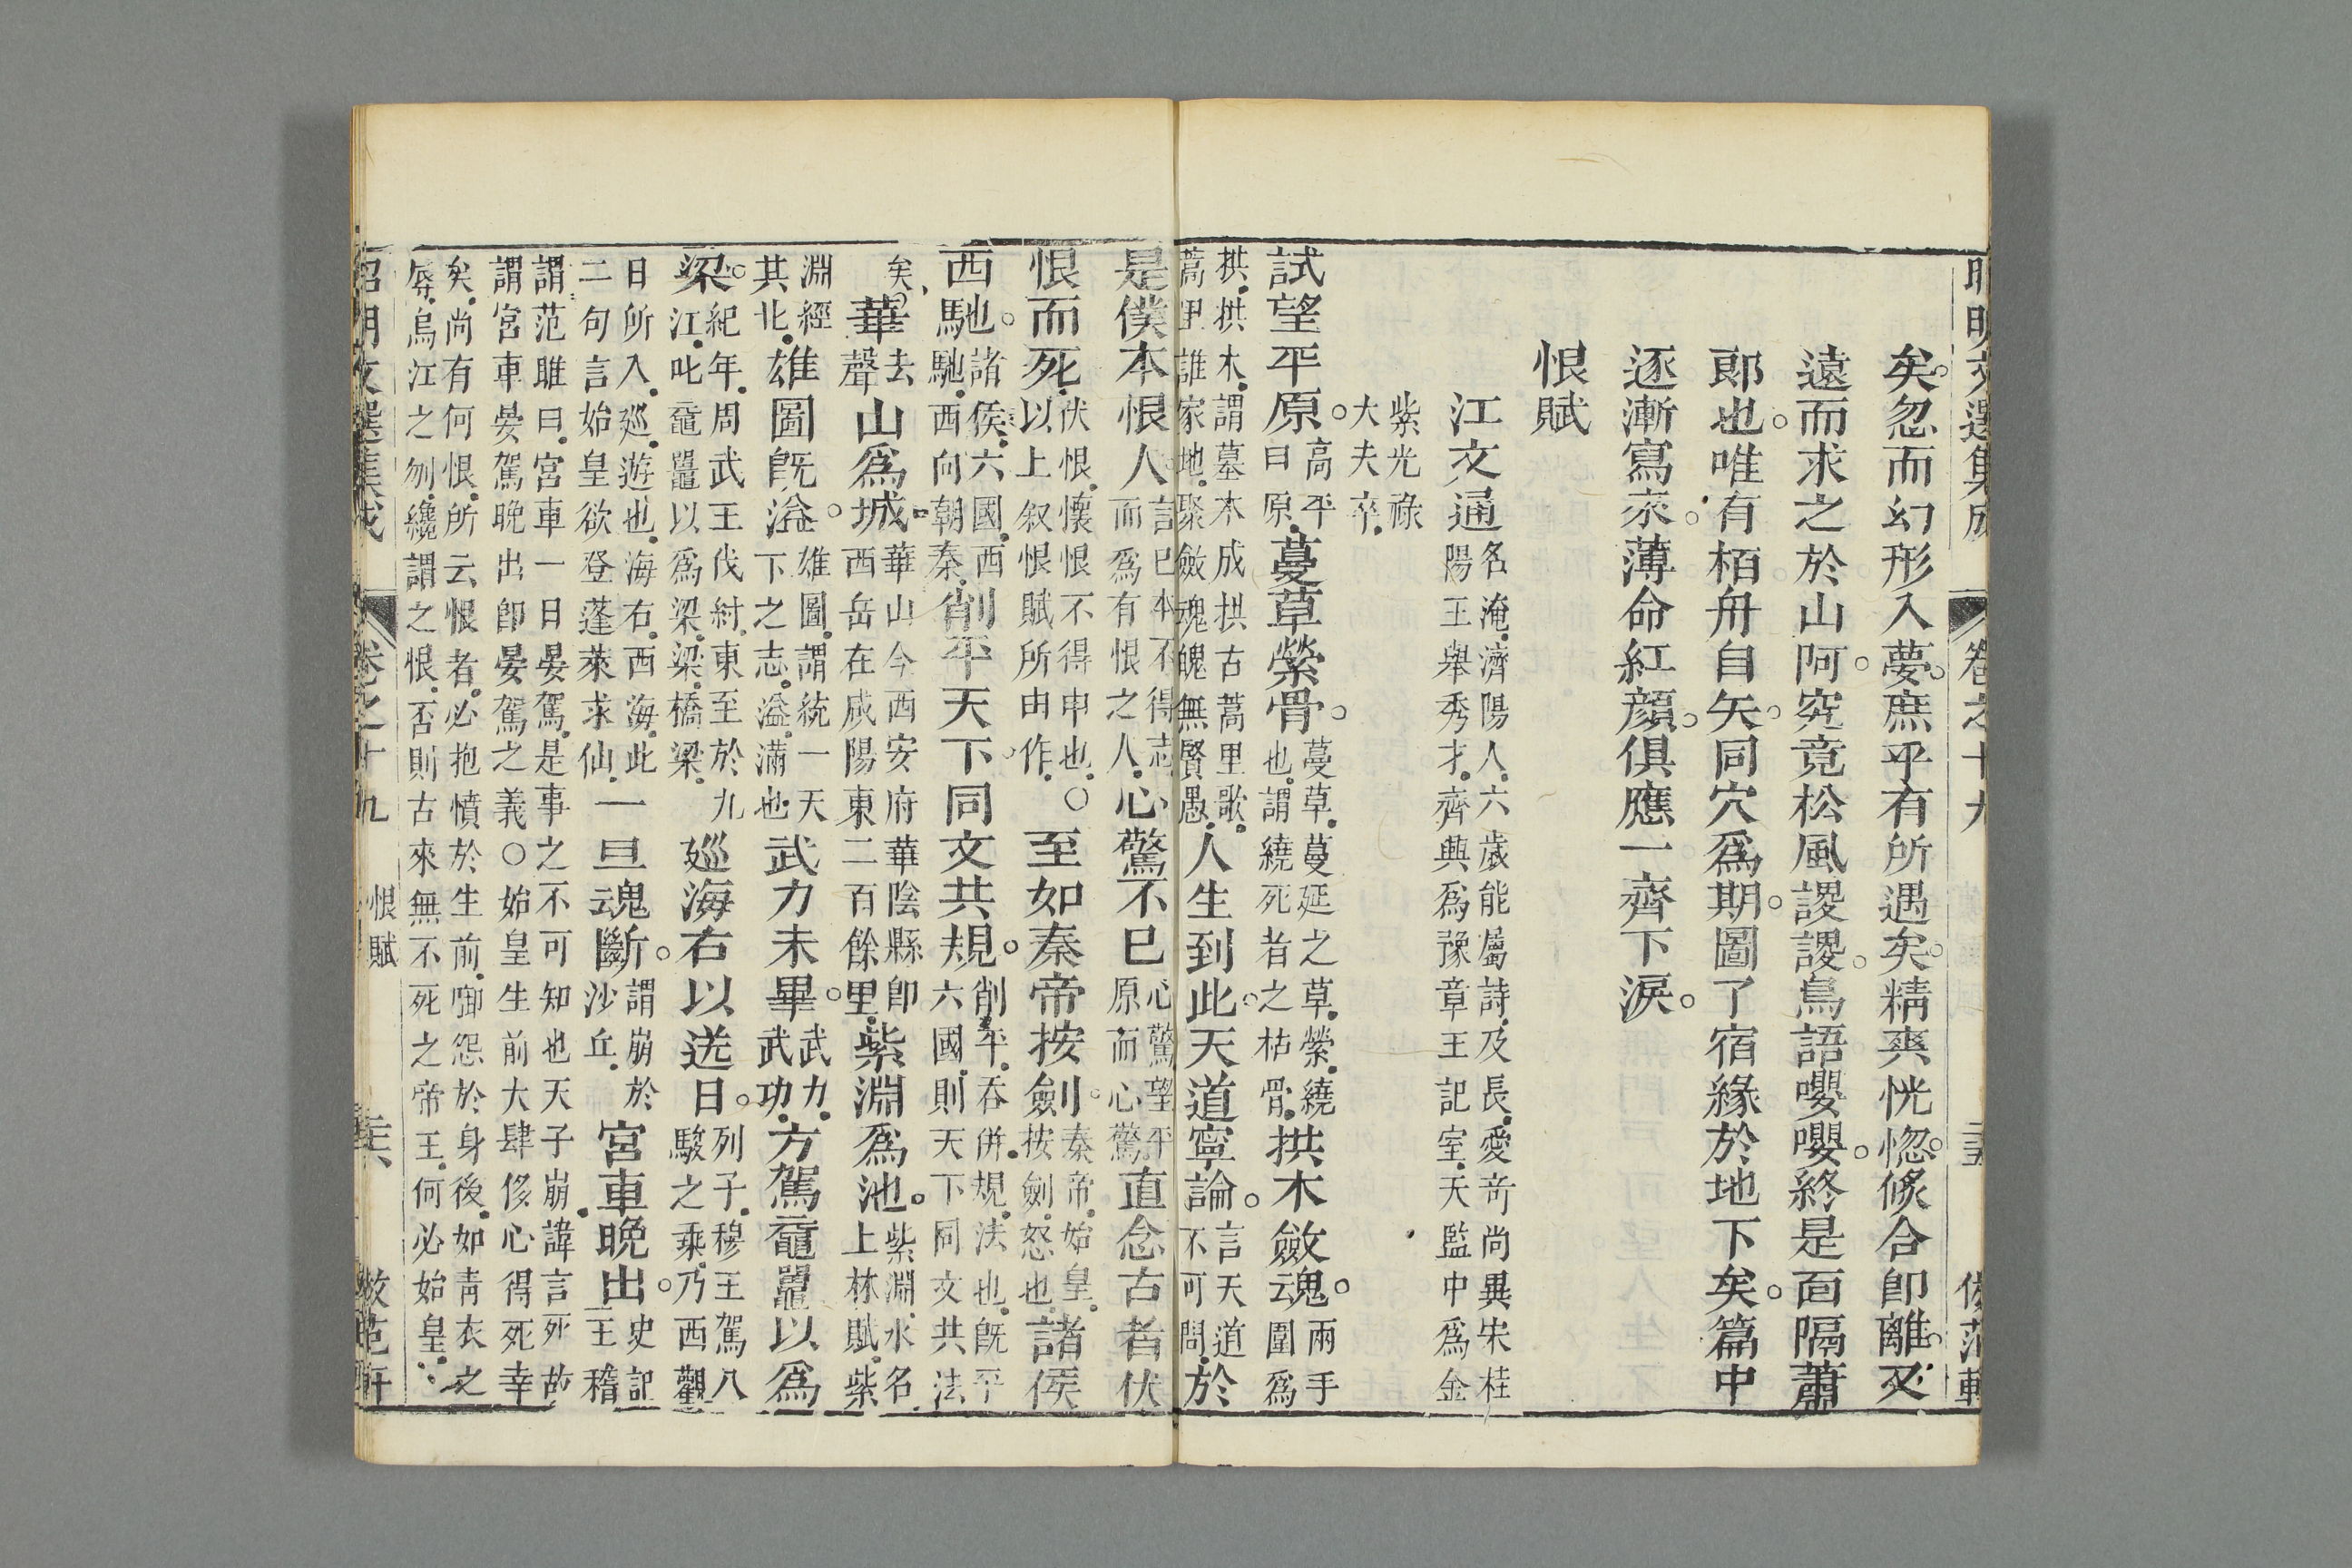 昭明文選集成 卷之十九 傲范軒
矣忽而幻形入夢庶乎有所遇矣精爽恍惚倐合卽離又
遠而求之於山阿究竟松風謖謖鳥語嚶嚶終是面隔蕭
郎也唯有栢舟自矢同穴爲期圖了宿緣於地下矣篇中
逐漸寫來薄命紅顔俱應一齊下淚
恨賦
江文通
名淹濟陽人六歲能屬詩及長愛竒尚異宋桂
陽王舉秀才齊興爲豫章王記室天監中爲金
紫光祿
大夫卒
試望平原高平曰原蔓草縈骨蔓草蔓延之草縈繞也謂繞死者之枯骨拱木斂魂兩手圍爲
拱拱木謂墓木成拱古蒿里歌
蒿里誰家地聚斂魂魄無賢愚人生到此天道寧論言天道不可問於
是僕本恨人言已本不得志而爲有恨之人心驚不已心驚望平原而心驚直念古者伏
恨而死伏恨懷恨不得申也以上叙恨賦所由作○至如秦帝按劍秦帝始皇按劍怒也諸侯
西馳諸侯六國西馳西向朝秦削平天下同文共規削平吞併規法也旣平六國則天下同文共法
矣華去聲山爲城華山今西安府華陰縣卽西岳在咸陽東二百餘里紫淵爲池紫淵水名上林賦紫
淵經其北雄圖旣溢雄圖謂統一天下之志溢滿也武力未畢武力武功方駕黿鼉以爲
梁紀年周武王伐紂東至於九江叱黿鼉以爲梁梁橋梁廵海右以送日列子穆王駕八駿之乘乃西觀
日所入廵遊也海右西海此二句言始皇欲登蓬萊求仙一旦魂斷謂崩於沙丘宮車晚出史記王稽
謂范雎曰宮車一日晏駕是事之不可知也天子崩諱言死故
謂宮車晏駕晚出卽晏駕之義○始皇生前大肆侈心得死幸
矣尚有何恨所云恨者必抱憤於生前啣怨於身後如靑衣之
辱烏江之刎纔謂之恨否則古來無不死之帝王何必始皇
昭明文選集成 卷之十九 恨賦 傲范軒